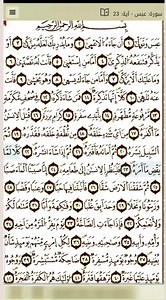 سورة: عبس - آية: 23
بِسْمِ اللَّهِ الرَّحْمَٰنِ الرَّحِيمِ
عَبَسَ وَتَوَلَّىٰ ١ أَن جَاءَهُ الْأَعْمَىٰ ٢ وَمَا يُدْرِيكَ لَعَلَّهُ يَزَّكَّىٰ ٣ أَوْ
يَذَّكَّرُ فَتَنفَعَهُ الذِّكْرَىٰ ٤ أَمَّا مَنِ اسْتَغْنَىٰ ٥ فَأَنتَ لَهُ تَصَدَّىٰ ٦
وَمَا عَلَيْكَ أَلَّا يَزَّكَّىٰ ٧ وَأَمَّا مَن جَاءَكَ يَسْعَىٰ ٨ وَهُوَ يَخْشَىٰ ٩ فَأَنتَ
عَنْهُ تَلَهَّىٰ ١٠ كَلَّا إِنَّهَا تَذْكِرَةٌ ١١ فَمَن شَاءَ ذَكَرَهُ ١٢ فِي صُحُفٍ مُّكَرَّمَةٍ
١٣ مَّرْفُوعَةٍ مُّطَهَّرَةٍ ١٤ بِأَيْدِي سَفَرَةٍ ١٥ كِرَامٍ بَرَرَةٍ ١٦ قُتِلَ الْإِنسَانُ
مَا أَكْفَرَهُ ١٧ مِنْ أَيِّ شَيْءٍ خَلَقَهُ ١٨ مِن نُّطْفَةٍ خَلَقَهُ فَقَدَّرَهُ ١٩
ثُمَّ السَّبِيلَ يَسَّرَهُ ٢٠ ثُمَّ أَمَاتَهُ فَأَقْبَرَهُ ٢١ ثُمَّ إِذَا شَاءَ أَنشَرَهُ ٢٢ كَلَّا لَمَّا
يَقْضِ مَا أَمَرَهُ ٢٣ فَلْيَنظُرِ الْإِنسَانُ إِلَىٰ طَعَامِهِ ٢٤ أَنَّا صَبَبْنَا الْمَاءَ
صَبًّا ٢٥ ثُمَّ شَقَقْنَا الْأَرْضَ شَقًّا ٢٦ فَأَنبَتْنَا فِيهَا حَبًّا ٢٧ وَعِنَبًا وَقَضْبًا
٢٨ وَزَيْتُونًا وَنَخْلًا ٢٩ وَحَدَائِقَ غُلْبًا ٣٠ وَفَاكِهَةً وَأَبًّا ٣١ مَّتَاعًا لَّكُمْ
وَلِأَنْعَامِكُمْ ٣٢ فَإِذَا جَاءَتِ الصَّاخَّةُ ٣٣ يَوْمَ يَفِرُّ الْمَرْءُ مِنْ أَخِيهِ
٣٤ وَأُمِّهِ وَأَبِيهِ ٣٥ وَصَاحِبَتِهِ وَبَنِيهِ ٣٦ لِكُلِّ امْرِئٍ مِّنْهُمْ يَوْمَئِذٍ شَأْنٌ
يُغْنِيهِ ٣٧ وُجُوهٌ يَوْمَئِذٍ مُّسْفِرَةٌ ٣٨ ضَاحِكَةٌ مُّسْتَبْشِرَةٌ ٣٩ وَوُجُوهٌ يَوْمَئِذٍ
عَلَيْهَا غَبَرَةٌ ٤٠ تَرْهَقُهَا قَتَرَةٌ ٤١ أُولَٰئِكَ هُمُ الْكَفَرَةُ الْفَجَرَةُ ٤٢